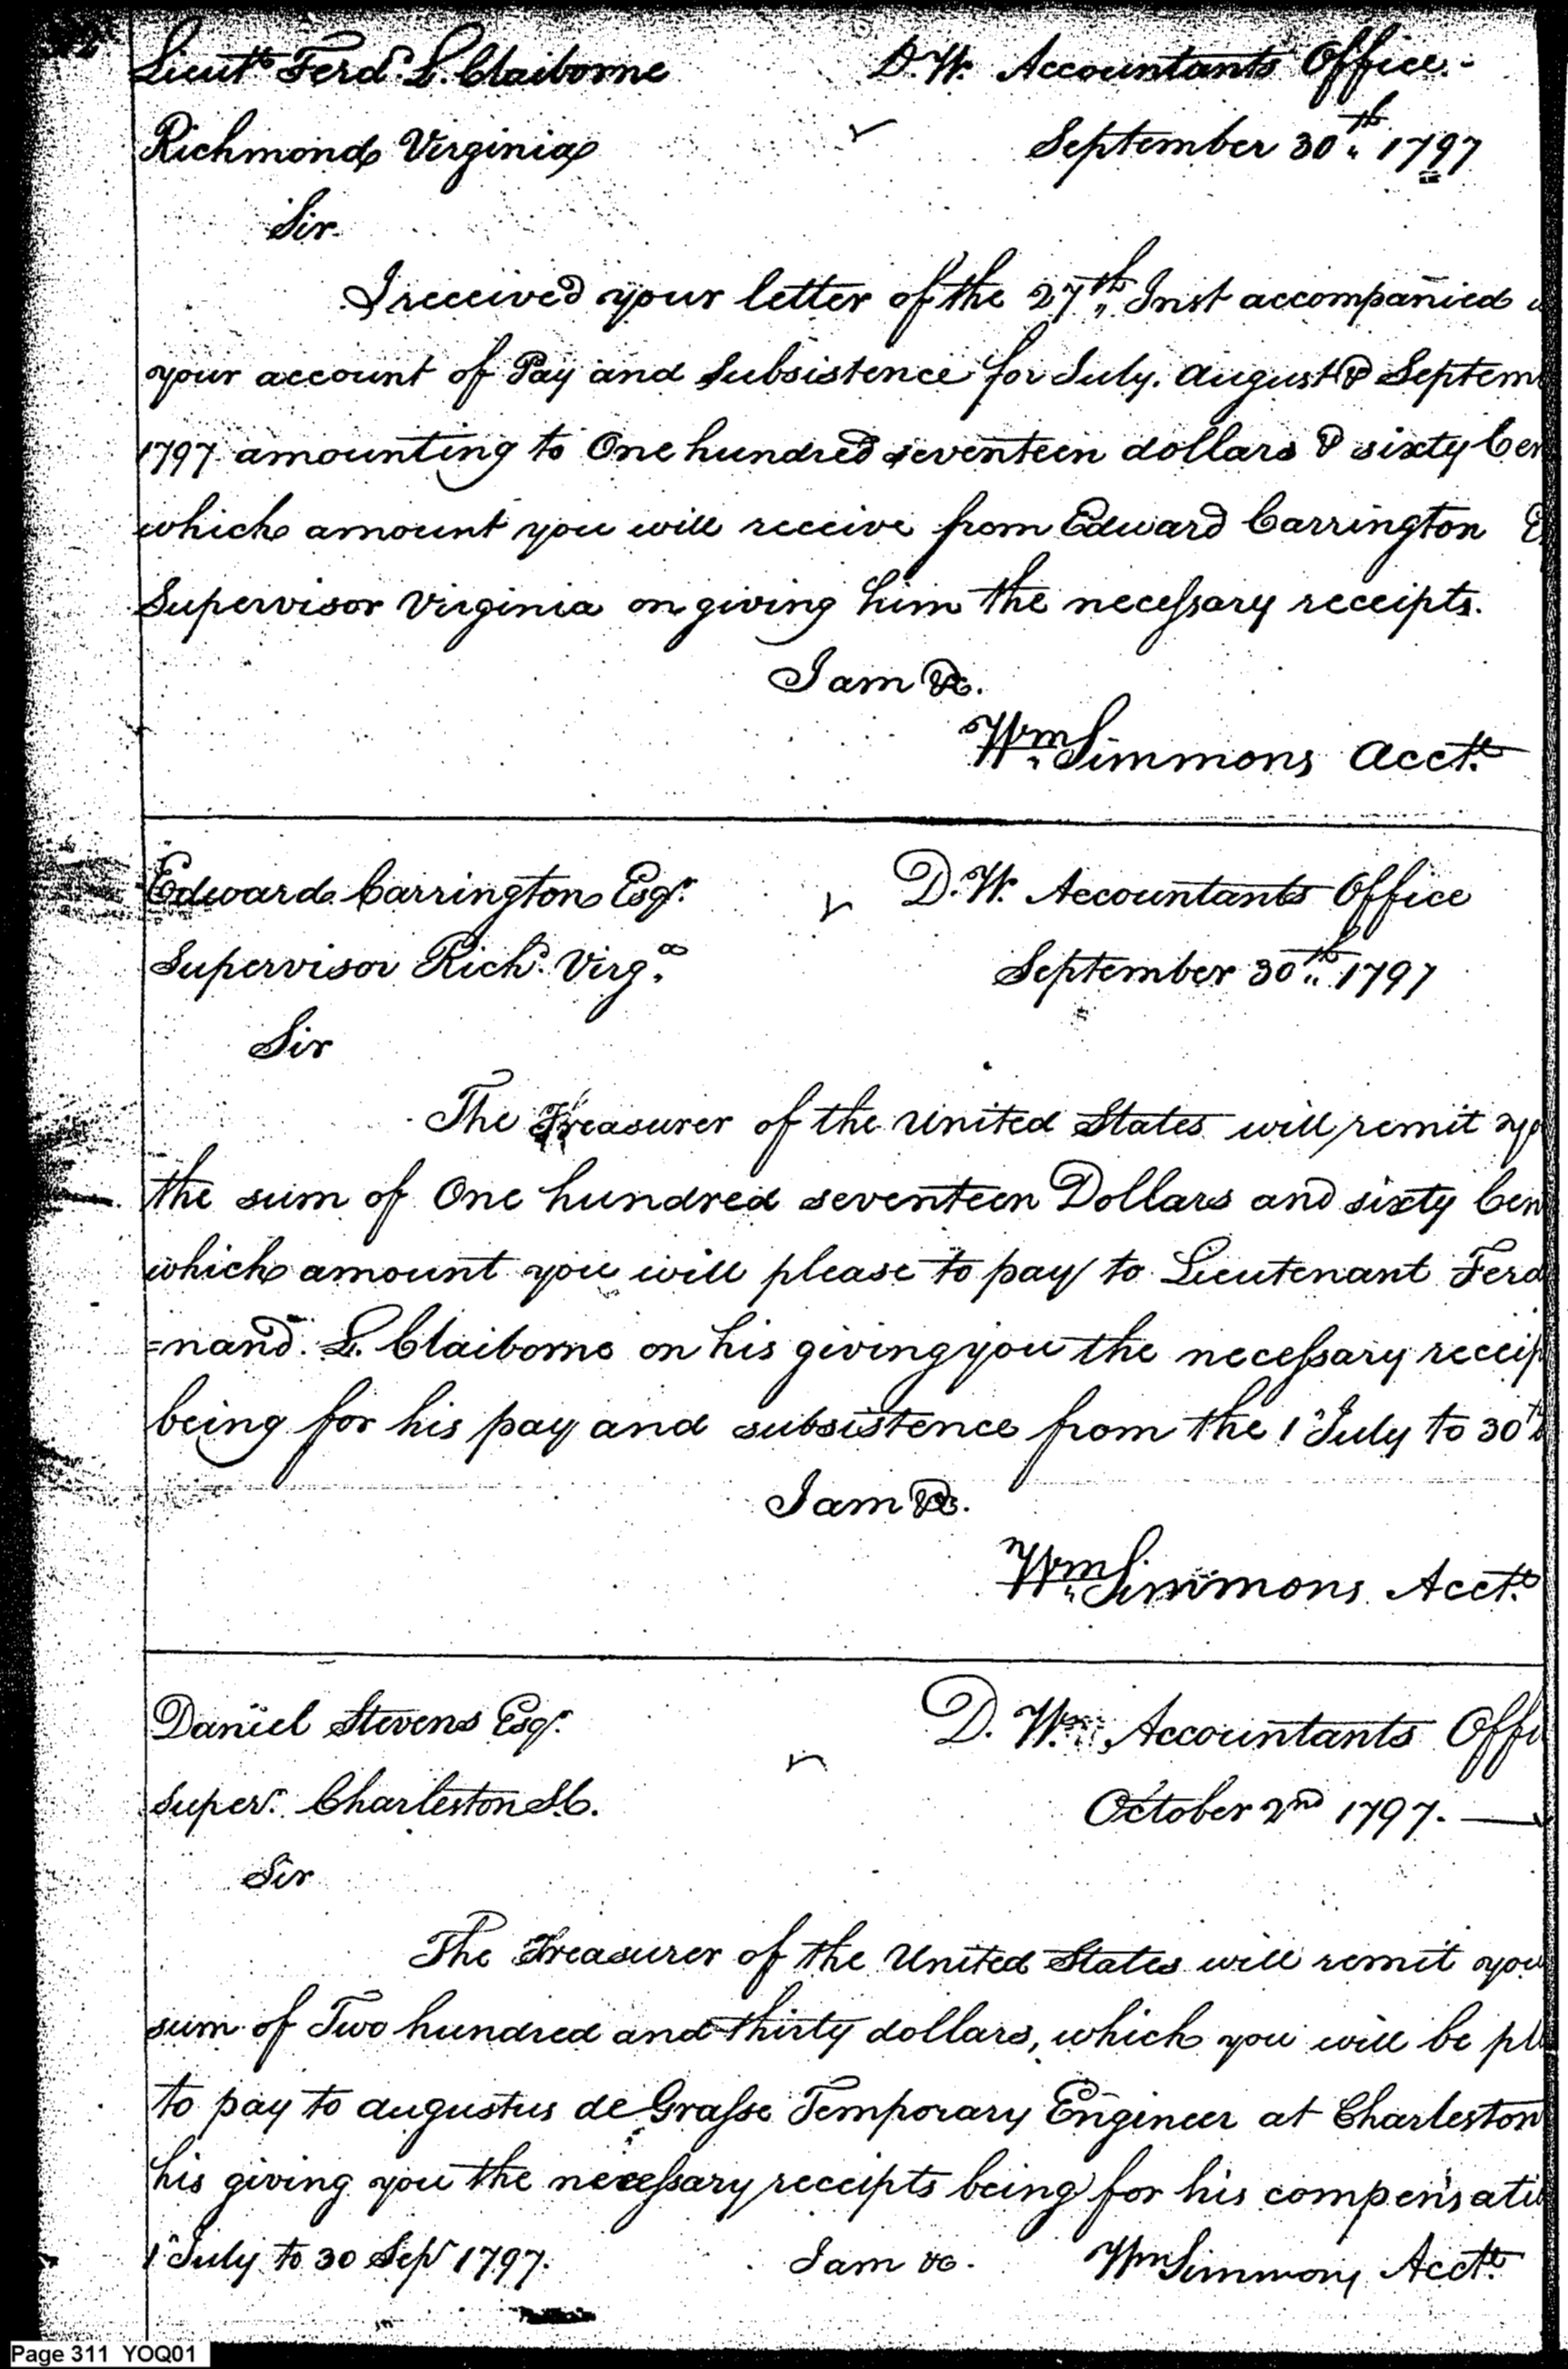 Lieut.t Ferd. L. Claiborne D. W. Accountants Office.
Richmond Virginia September 30th 1797
Sir
I received your letter of the 27th Inst accompanied
your account of Pay and Subsistence for July. August & Septem
1797 amounting to One hundred seventeen dollars & sixty Cen
which amount you will receive from Edward Carrington E
Supervisor Virginia on giving him the necessary receipts.
I am &c.
Wm Simmons Acct.t
Edward Carrington Esqr. D. W. Accountants Office
Supervisor Richd. Virga. September 30th 1797
Sir
The Treasurer of the United States will remit yo
the sum of One hundred seventeen Dollars and sixty Cen
which amount you will please to pay to Lieutenant Ferd
=nand. L. Claiborne on his giving you the necessary receip
being for his pay and subsistence from the 1 July to 30th
I am &c.
Wm Simmons Acct.t
Daniel Stevens Esqr. D. W. Accountants Offi
Super. Charleston S.C. October 2nd 1797.
Sir
The Treasurer of the United States will remit you
sum of Two hundred and thirty dollars, which you will be ple
to pay to Augustus de Grasse Temporary Engineer at Charleston
his giving you the necessary receipts being for his compensatio
1 July to 30 Sepr 1797. I am &c. Wm Simmons Acct.t
Page 311 YOQ01